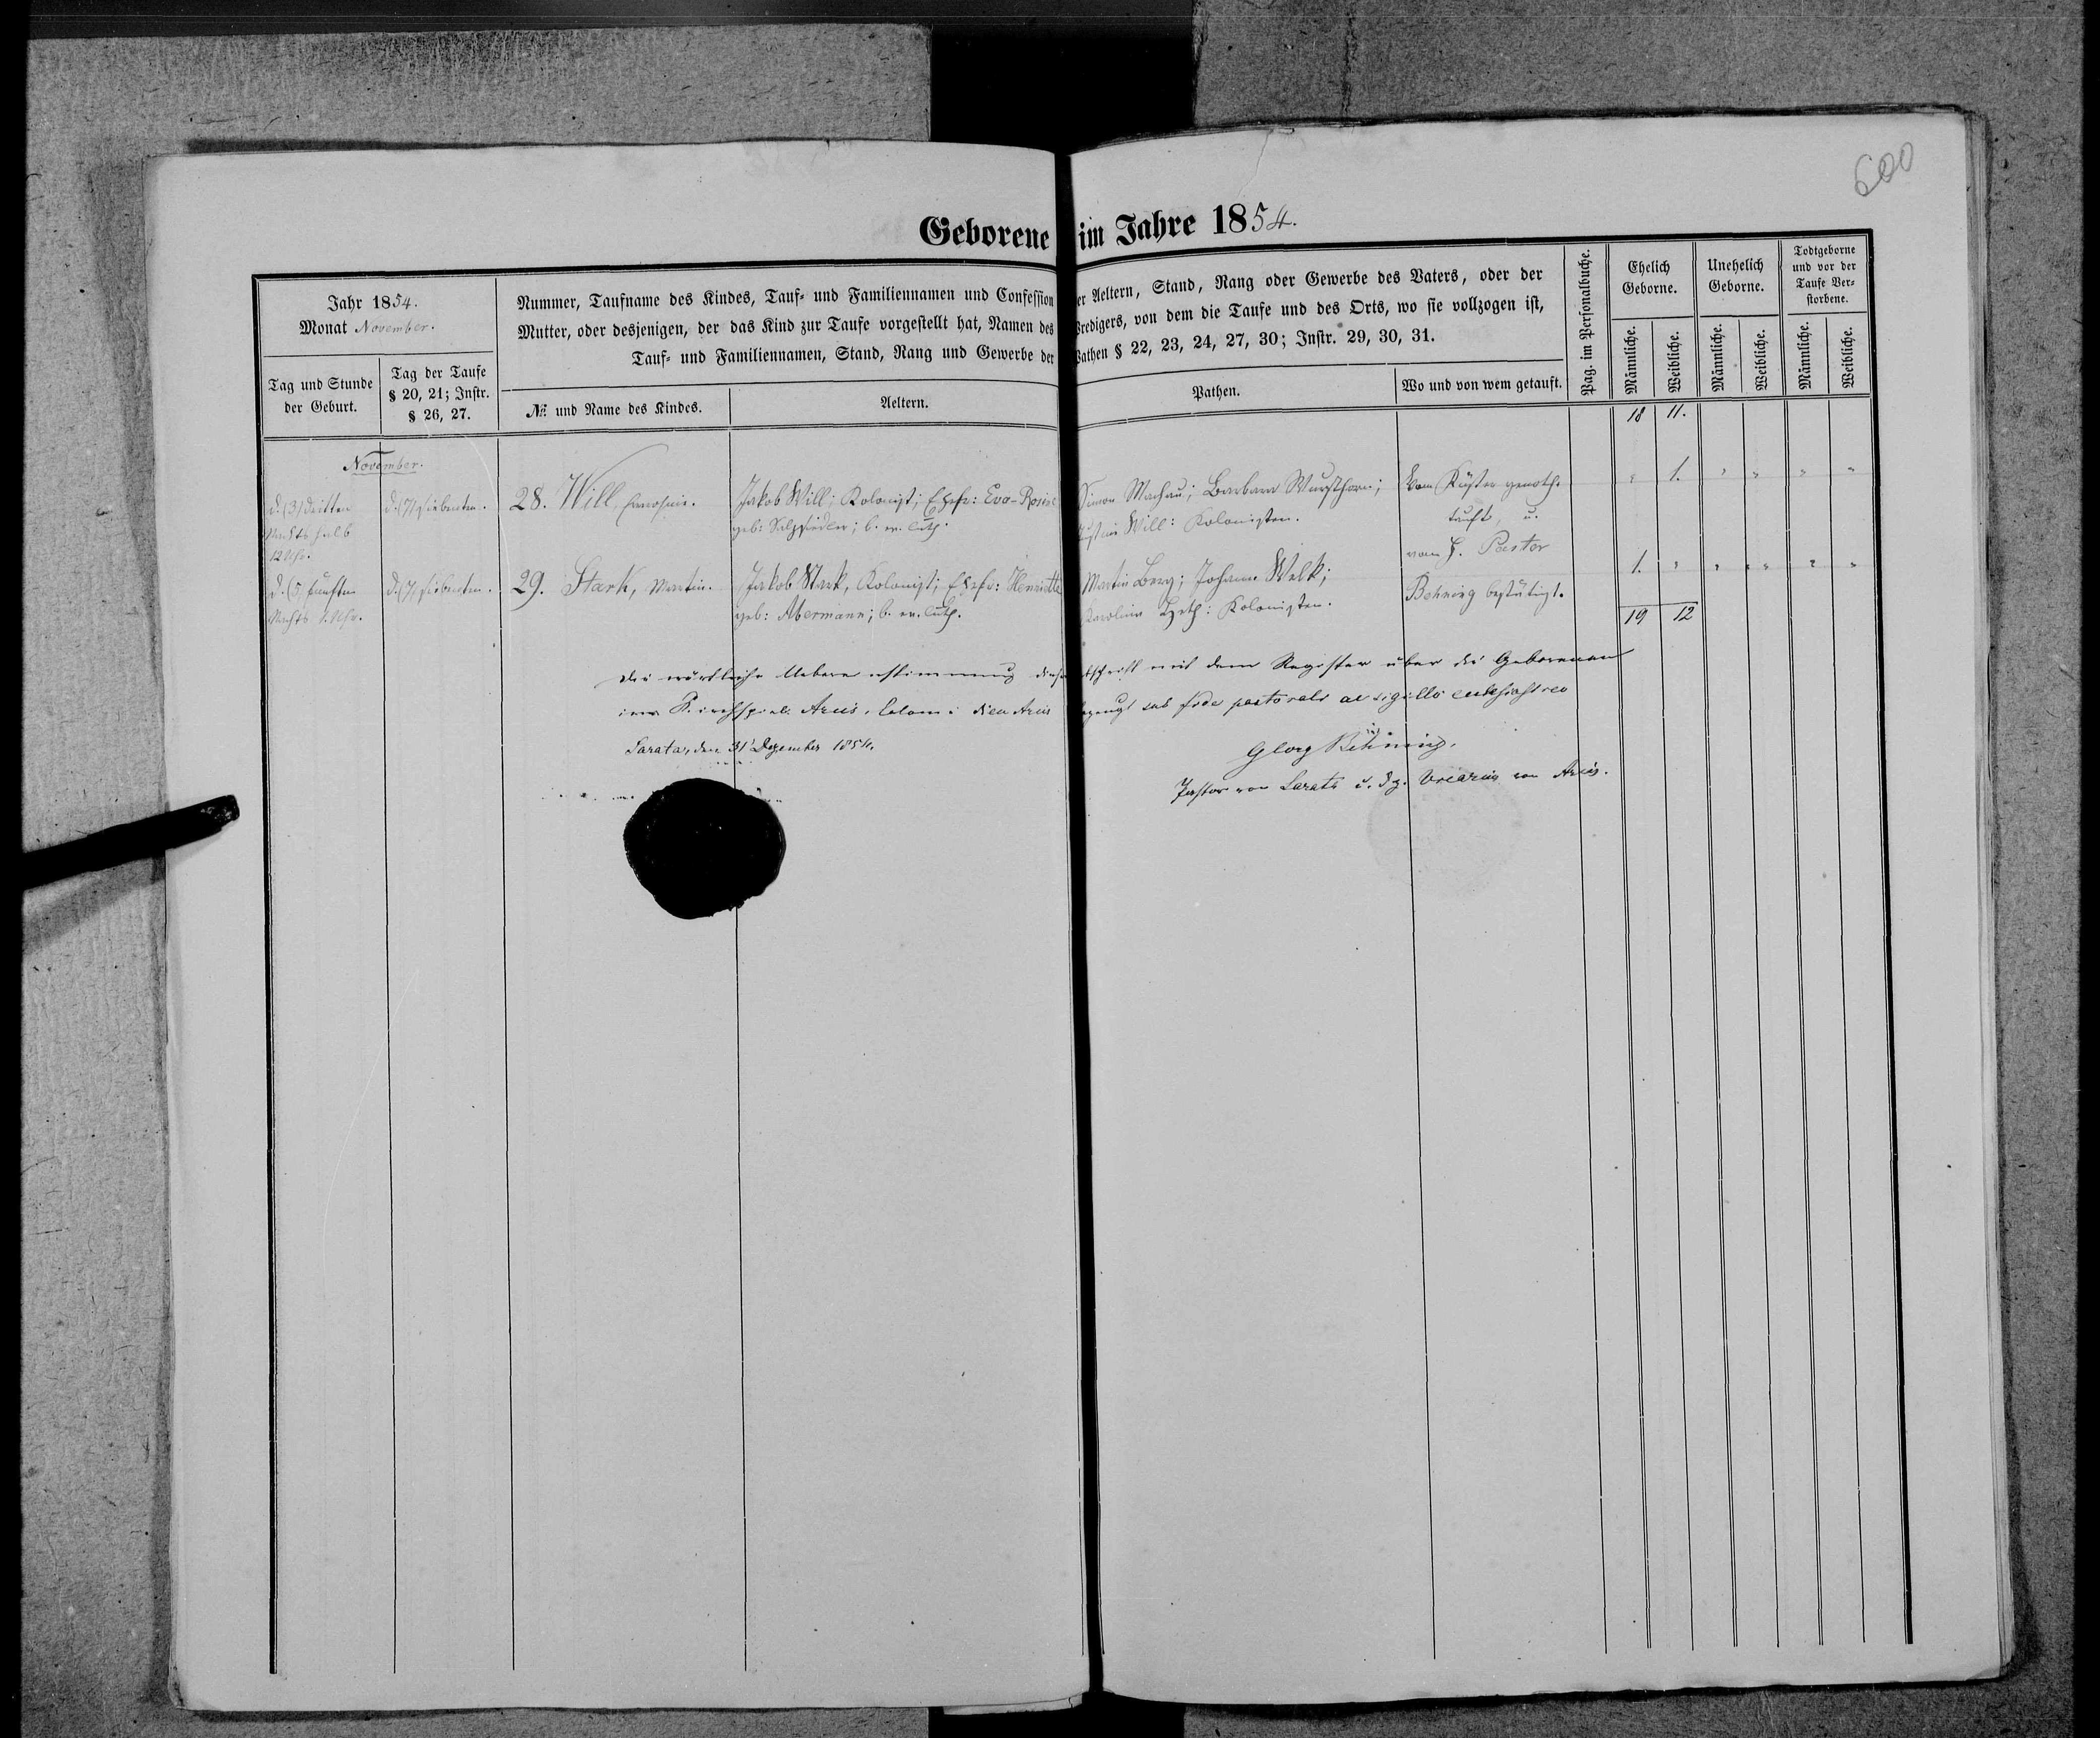 600
Geborene im Jahre 1854.
Jahr 1854.
Monat November.
Nummer, Taufname des Kindes, Tauf- und Familiennamen und Confession der Aeltern, Stand, Rang oder Gewerbe des Vaters, oder der
Mutter, oder desjenigen, der das Kind zur Taufe vorgestellt hat, Namen des Predigers, von dem die Taufe und des Orts, wo sie vollzogen ist,
Tauf- und Familiennamen, Stand, Rang und Gewerbe der Pathen § 22, 23, 24, 27, 30; Instr. 29, 30, 31.
Pag. im Personalbuche.
Ehelich
Geborne.
Unehelich
Geborne.
Todtgeborne
und vor der
Taufe Ver-
storbene.
Tag und Stunde
der Geburt.
Tag der Taufe
§ 20, 21; Instr.
§ 26, 27.
№ und Name des Kindes.
Aeltern.
Pathen.
Wo und von wem getauft.
Männliche.
Weibliche.
Männliche.
Weibliche.
Männliche.
Weibliche.
18 11.
November.
d. (3) dritten
Nachts halb
12 Uhr.
d. (7) siebenten.
28. Will,
Jakob Will; Kolonist; Ehefr: Eva-Rosine
geb: b. ev. luth.
Simon Machau; Barbara Wursthorn;
Will: Kolonisten.
Vom Küster genoth-
tauft, u.
vom H. Pastor
Behning bestätigt.
" 1. " " " "
d. (5) fünften
Nachts 1. Uhr.
d. (7) siebenten.
29. Stark, Martin.
Jakob Stark, Kolonist; Ehefr: Henriette
geb: Abermann; b. ev. luth.
Martin Berg; Johann Welk;
Karolina : Kolonisten.
1. " " " " "
19 12
Die wörtliche Uebereinstimmung dieser Abschrift mit dem Register über die Geborenen
im Kirchspiel Arcis, Coloni Alt Arcis bezeugt sub fide pastorali ac sigillo ecclesiastico
Sarata, den 31 Dezember 1854.
Georg Behning,
Pastor von Sarata u. Vicarius von Arcis.